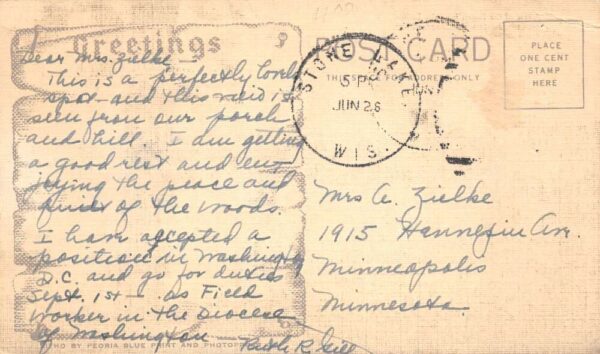 Greetings
Dear Mrs. Zielke –
This is a perfectly lovely
spot – and this view is
seen from our porch
and hill. I am getting
a good rest and en-
joying the peace and
quiet of the woods.
I have accepted a
position in Washington
D.C. and go for duties
Sept. 1st – as Field
Worker in the Diocese
of Washington
PHOTO BY PEORIA BLUE PRINT AND PHOTOP
POST CARD
THIS SIDE FOR ADDRESS ONLY
PLACE
ONE CENT
STAMP
HERE
STONE LAKE
5 PM
JUN 26
WIS.
JUN
Mrs A. Zielke
1915 Hennepin Av.
Minneapolis
Minnesota.